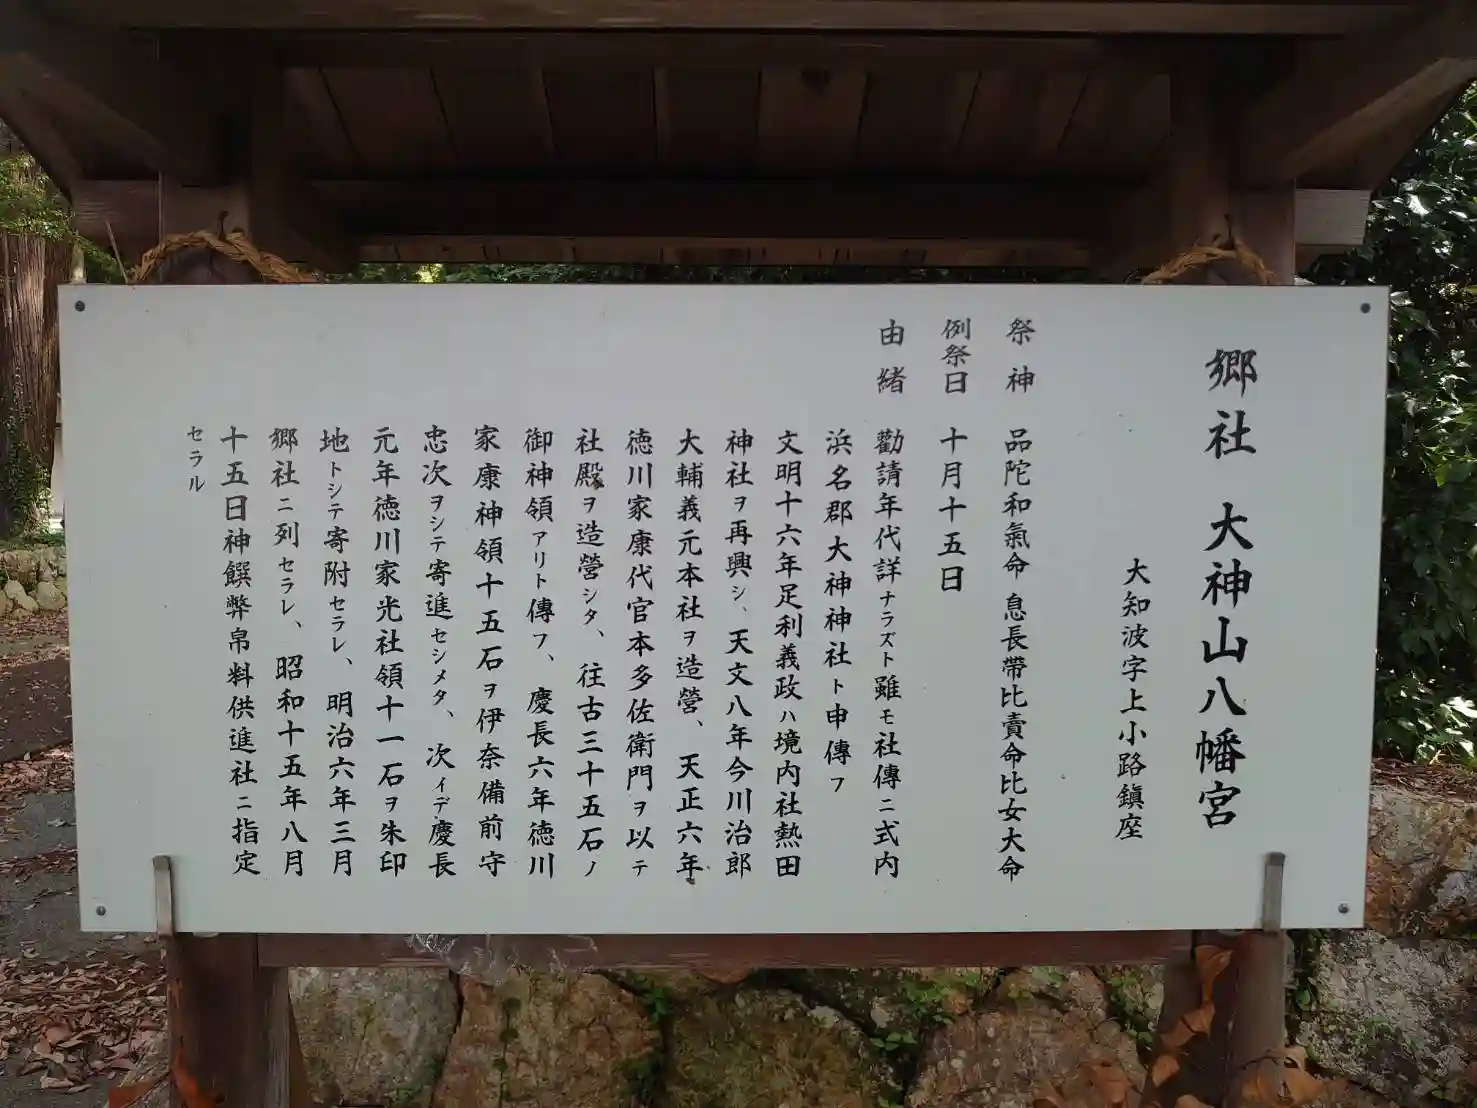 郷社 大神山八幡宮
大知波字上小路鎮座
祭神 品陀和氣命 息長帶比賣命比女大命
例祭日 十月十五日
由緒 勸請年代詳ナラズト雖モ社傳ニ式内
浜名郡大神神社ト申傳フ
文明十六年足利義政ハ境内社熱田
神社ヲ再興シ、天文八年今川治郎
大輔義元本社ヲ造營、天正六年
徳川家康代官本多佐衛門ヲ以テ
社殿ヲ造營シタ、往古三十五石ノ
御神領アリト傳フ、慶長六年徳川
家康神領十五石ヲ伊奈備前守
忠次ヲシテ寄進セシメタ、次イデ慶長
元年徳川家光社領十一石ヲ朱印
地トシテ寄附セラレ、明治六年三月
郷社ニ列セラレ、昭和十五年八月
十五日神饌弊帛料供進社ニ指定
セラル